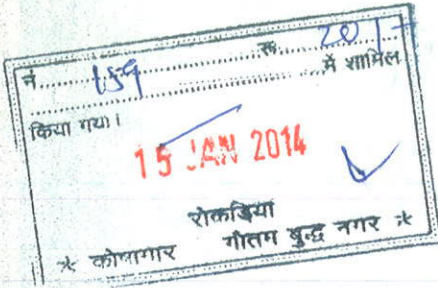 नं. 159 रू. 20/-
में शामिल
किया गया।
15 JAN 2014
रोकड़िया
* कोषागार गौतम बुद्ध नगर *